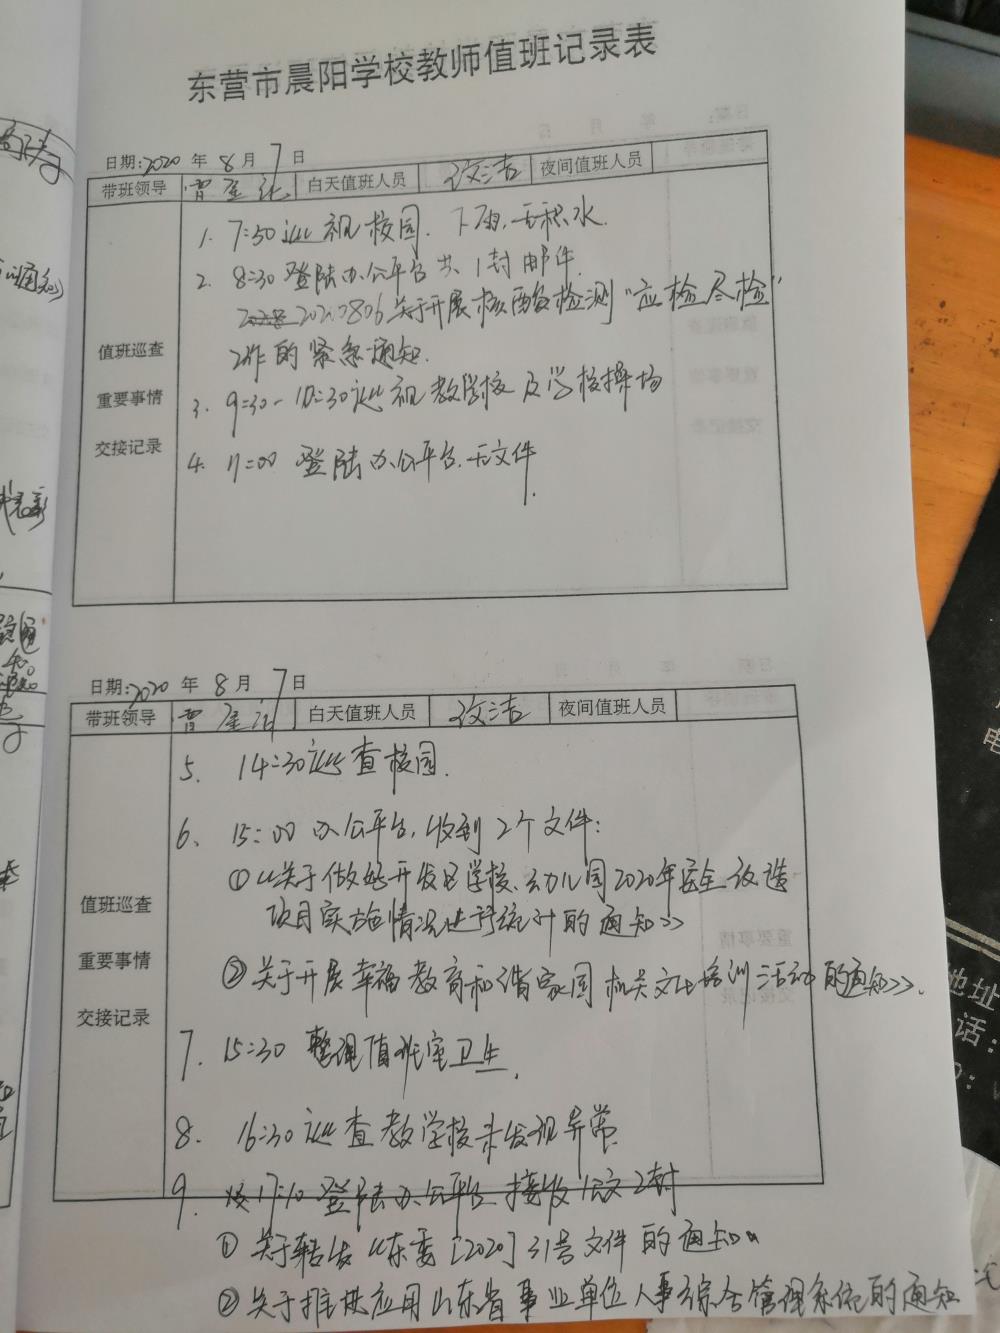 东营市晨阳学校教师值班记录表
日期:2020 年 8 月 7 日
带班领导 曹 白天值班人员 洁 夜间值班人员
值班巡查
重要事情
交接记录
1. 7:50巡视校园. 下雨,无积水.
2. 8:30 登陆办公平台共1封邮件.
20200806关于开展核酸检测"应检尽检"
工作的紧急通知.
3. 9:30-10:30巡视教学校及学校操场
4. 11:00 登陆办公平台,无文件.
日期:2020 年 8 月 7 日
带班领导 曹 白天值班人员 洁 夜间值班人员
值班巡查
重要事情
交接记录
5. 14:30巡查校园.
6. 15:00办公平台,收到2个文件:
①《关于做好开发区学校、幼儿园2020年安全改造
项目实施情况进行统计的通知》
②关于开展幸福教育和谐家园 机关文化培训活动的通知》.
7. 15:30 整理值班室卫生.
8. 16:30巡查教学校未发现异常.
9. 17:10登陆办公平台 接收公文2封
①关于转发 东委[2020]31号文件的通知
②关于推进应用山东省事业单位人事综合管理系统的通知
地址
话:
电